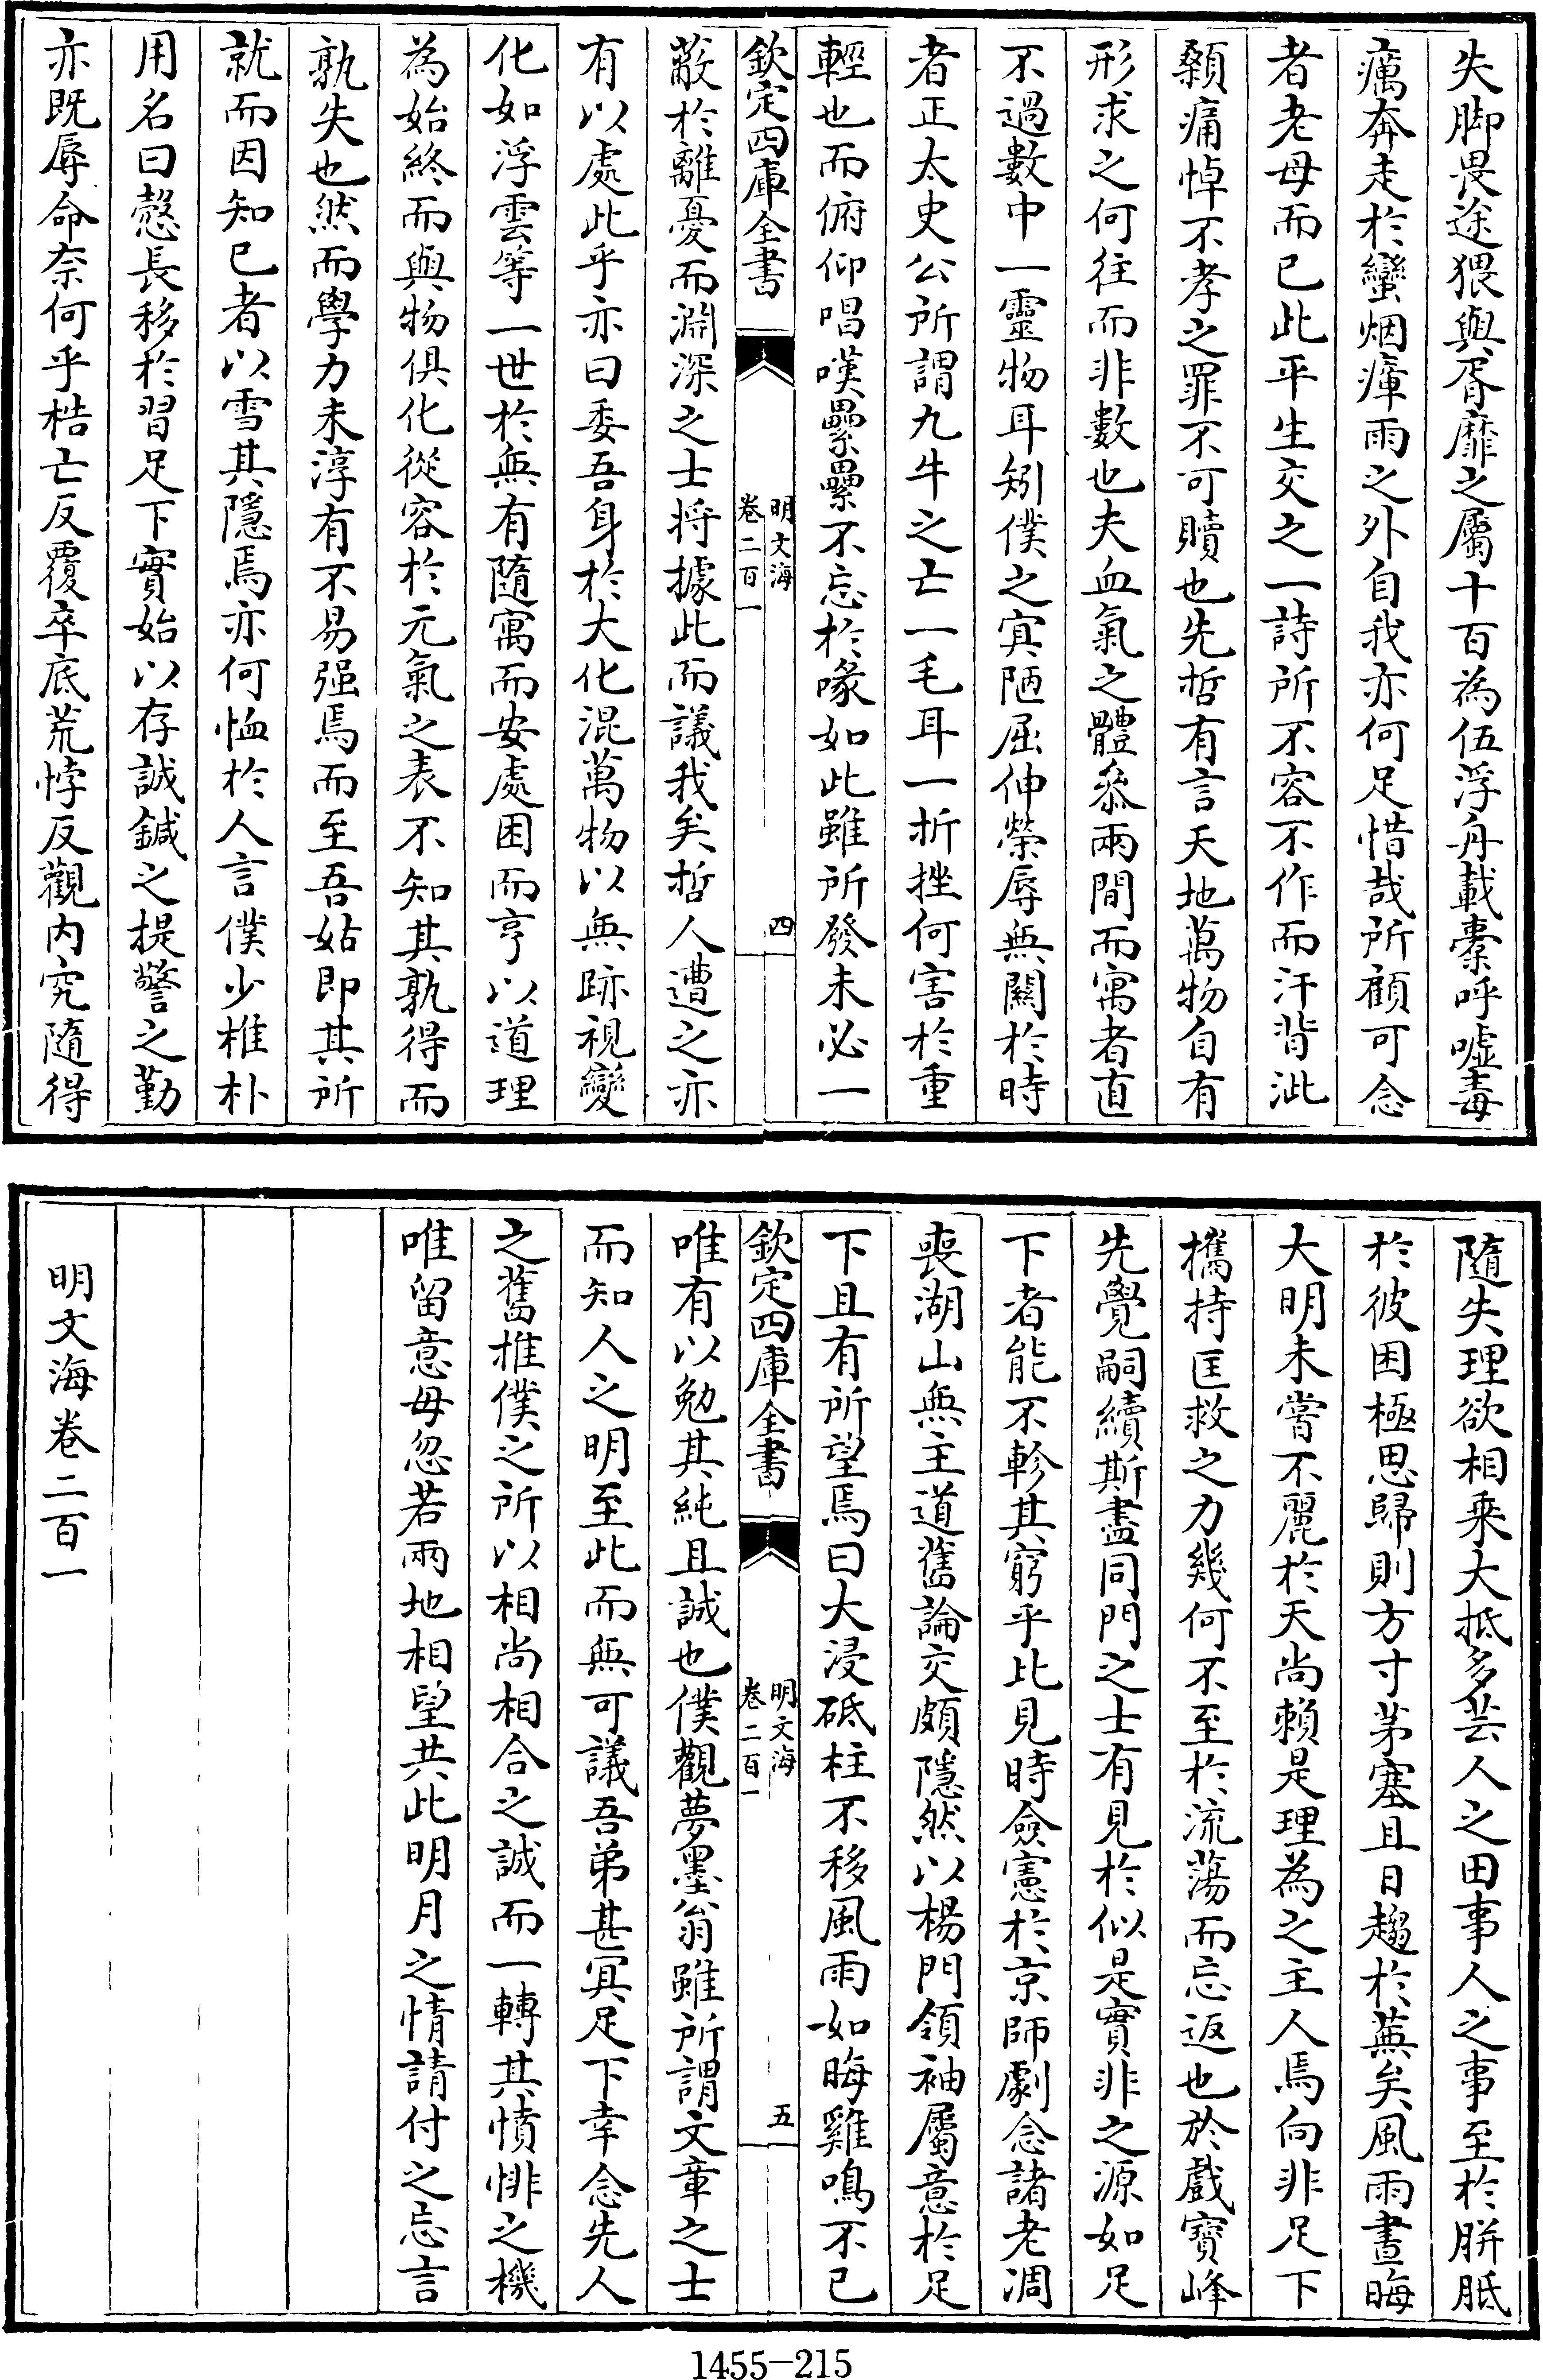 失脚畏途猥與胥靡之屬十百為伍浮舟載橐呼噓毒
癘奔走於蠻烟瘴雨之外自我亦何足惜哉所顧可念
者老母而已此平生交之一詩所不容不作而汗背泚
顙痛悼不孝之罪不可贖也先哲有言天地萬物自有
形求之何往而非數也夫血氣之體叅兩間而寓者直
不過數中一靈物耳矧僕之寘陋屈伸榮辱無關於時
者正太史公所謂九牛之亡一毛耳一折挫何害於重
輕也而俯仰唱嘆纍纍不忘於喙如此雖所發未必一
欽定四庫全書
明文海
卷二百一
四
蔽於離憂而淵深之士將據此而議我矣哲人遭之亦
有以處此乎亦曰委吾身於大化混萬物以無跡視變
化如浮雲等一世於無有隨寓而安處困而亨以道理
為始終而與物俱化從容於元氣之表不知其孰得而
孰失也然而學力未淳有不易强焉而至吾姑即其所
就而因知已者以雪其隱焉亦何恤於人言僕少椎朴
用名曰慤長移於習足下實始以存誠鍼之提警之勤
亦既辱命奈何乎梏亡反覆卒底荒悖反觀内究隨得
隨失理欲相乘大抵多芸人之田事人之事至於胼胝
於彼困極思歸則方寸茅塞且日趨於蕪矣風雨晝晦
大明未嘗不麗於天尚賴是理為之主人焉向非足下
攜持匡救之力幾何不至於流蕩而忘返也於戲寶峰
先覺嗣續斯盡同門之士有見於似是實非之源如足
下者能不軫其窮乎比見時僉憲於京師劇念諸老凋
喪湖山無主道舊論交頗隱然以楊門領袖屬意於足
下且有所望焉曰大浸砥柱不移風雨如晦雞鳴不已
欽定四庫全書
明文海
卷二百一
五
唯有以勉其純且誠也僕觀夢墨翁雖所謂文章之士
而知人之明至此而無可議吾弟甚冥足下幸念先人
之舊推僕之所以相尚相合之誠而一轉其憤悱之機
唯留意毋忽若兩地相望共此明月之情請付之忘言
明文海卷二百一
1455-215